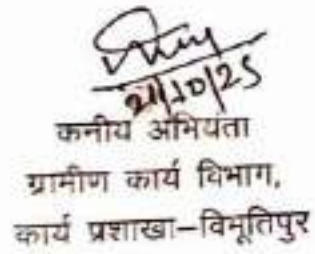 21/10/25
कनीय अभियंता
ग्रामीण कार्य विभाग,
कार्य प्रशाखा–विभूतिपुर